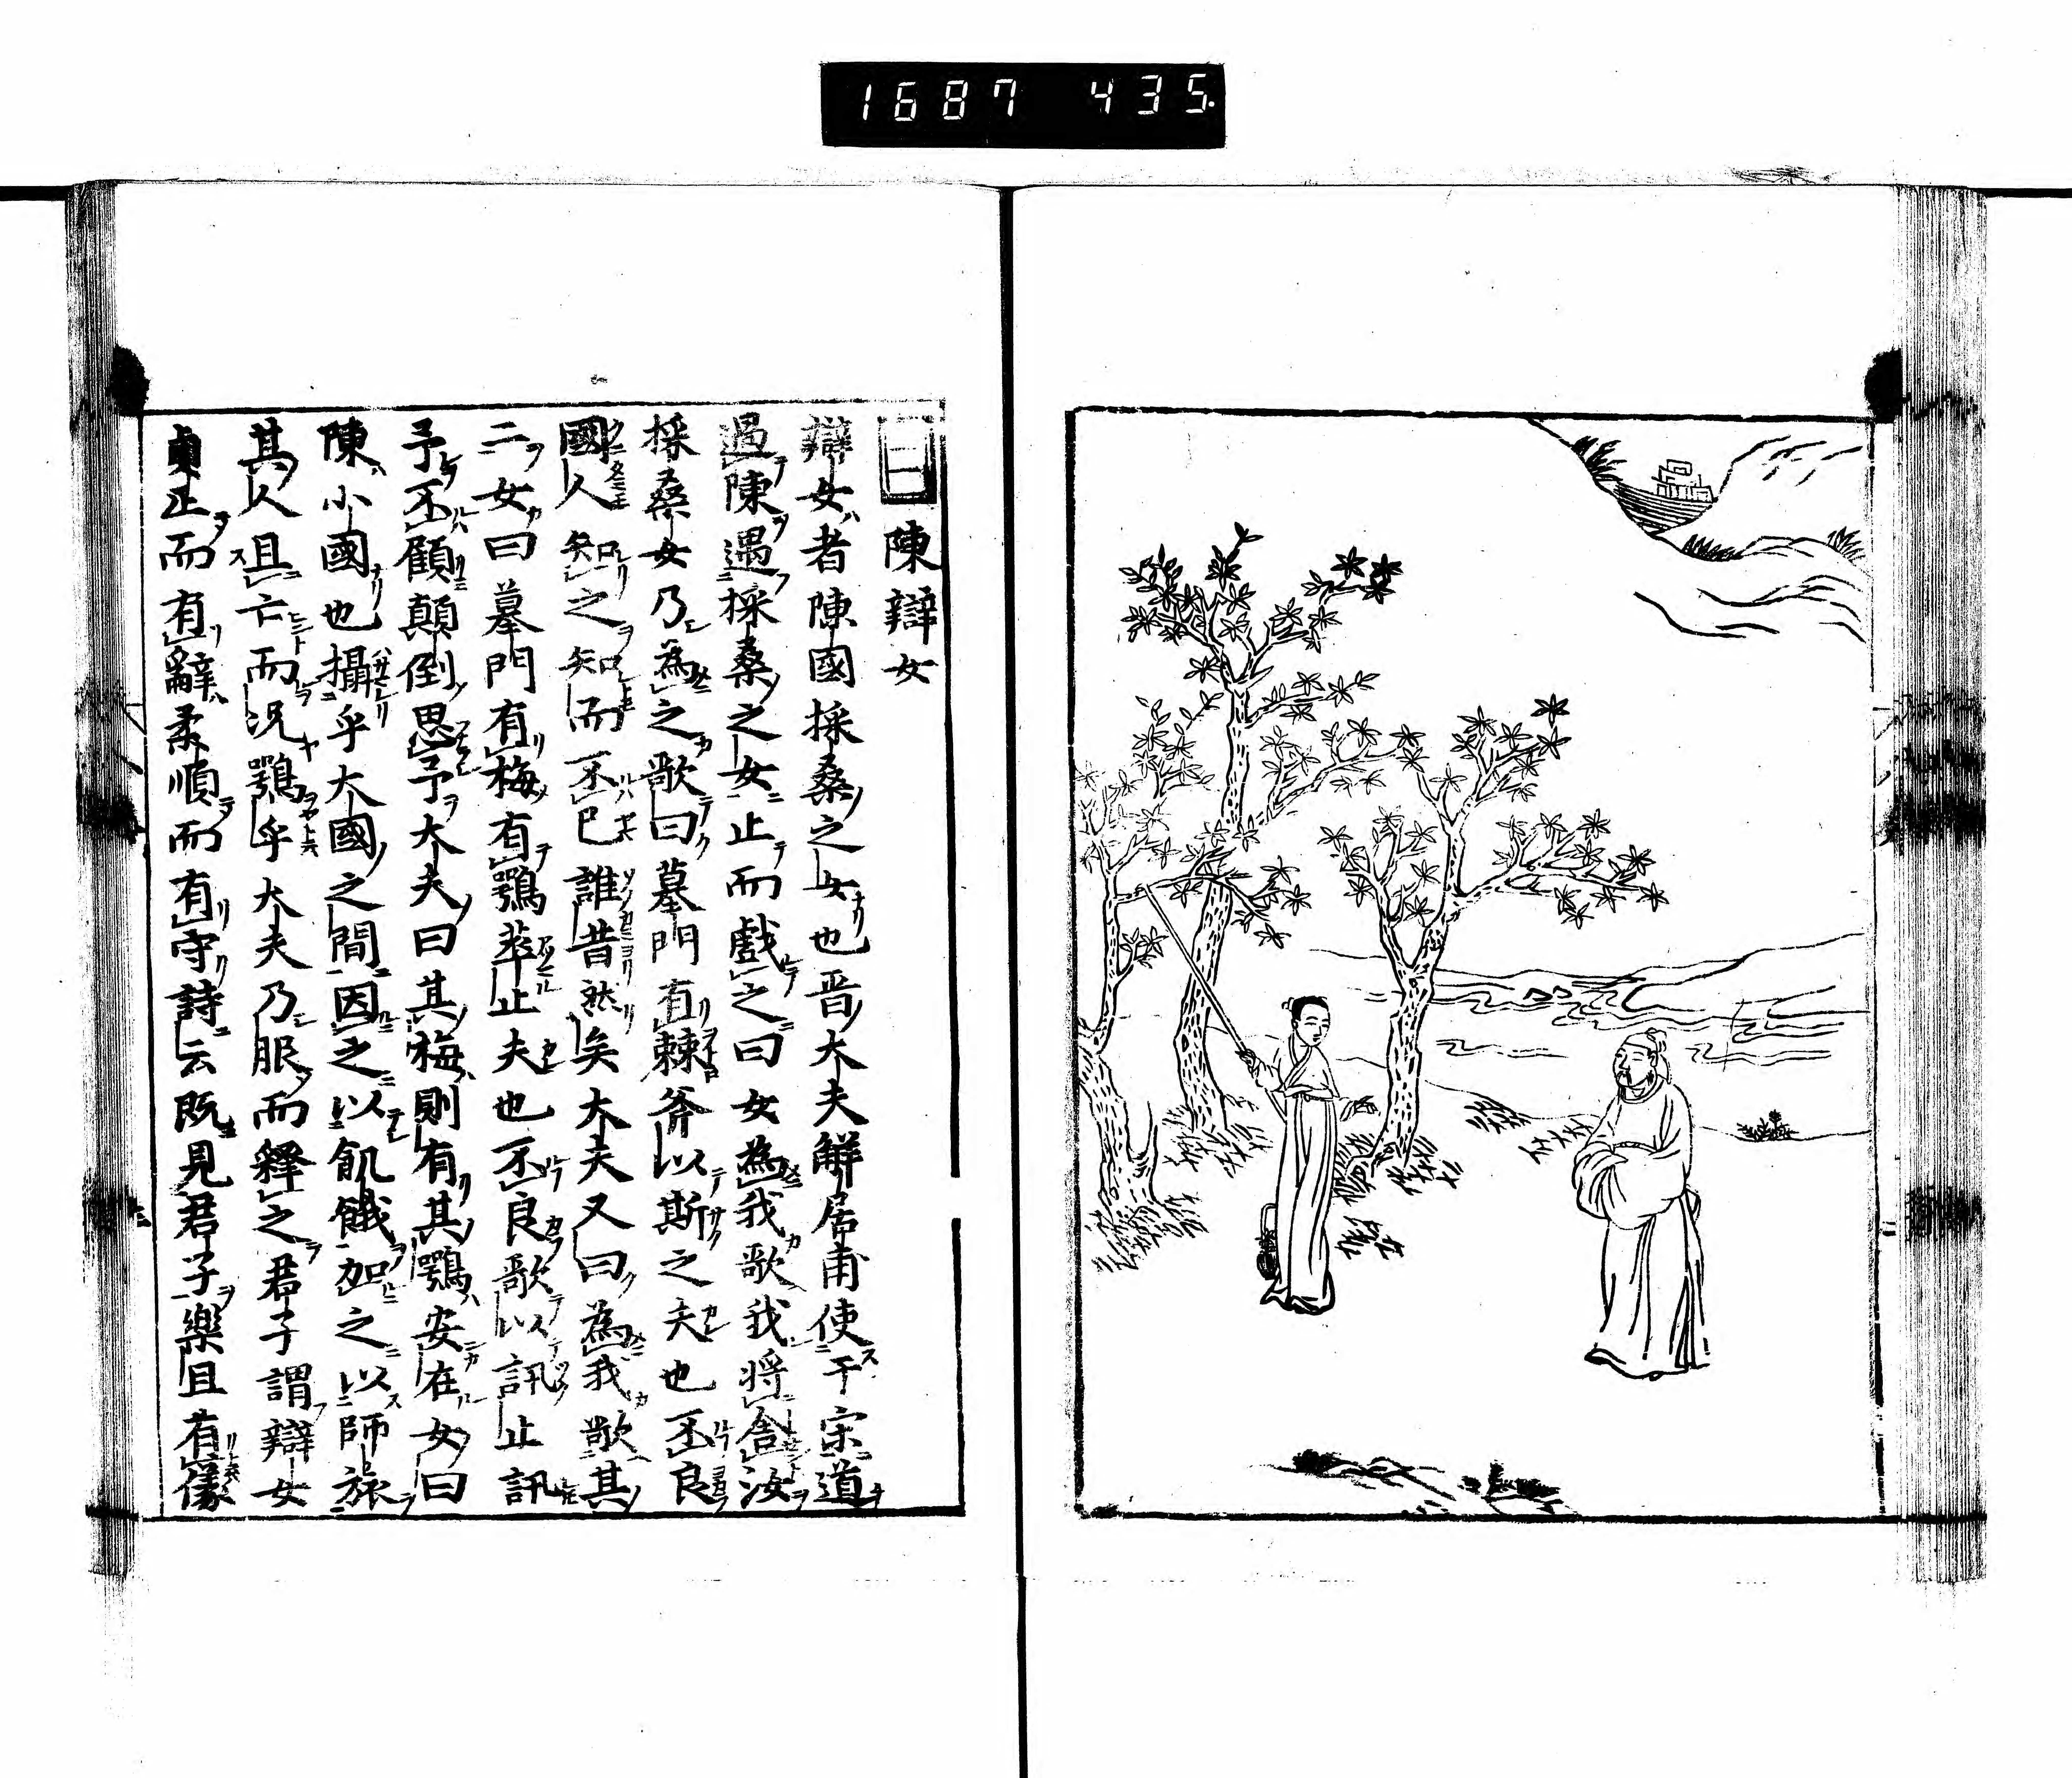 1687 435.
陳辯女
辯女者陳國採桑之女也晋大夫解居甫使于宋道
過陳遇採桑之女止而戲之曰女為我歌我將舎汝
採桑女乃為之歌曰墓門有棘斧以斯之夫也不良
國人知之知而不已誰昔然矣大夫又曰為我歌其
二女曰墓門有梅有鴞萃止夫也不良歌以訊止訊
予不顧顛倒思予大夫曰其梅則有其鴞安在女曰
陳小國也攝乎大國之間因之以飢餓加之以師旅
其人且亡而况鴞乎大夫乃服而釋之君子謂辯女
貞正而有辭柔順而有守詩云既見君子樂且有儀